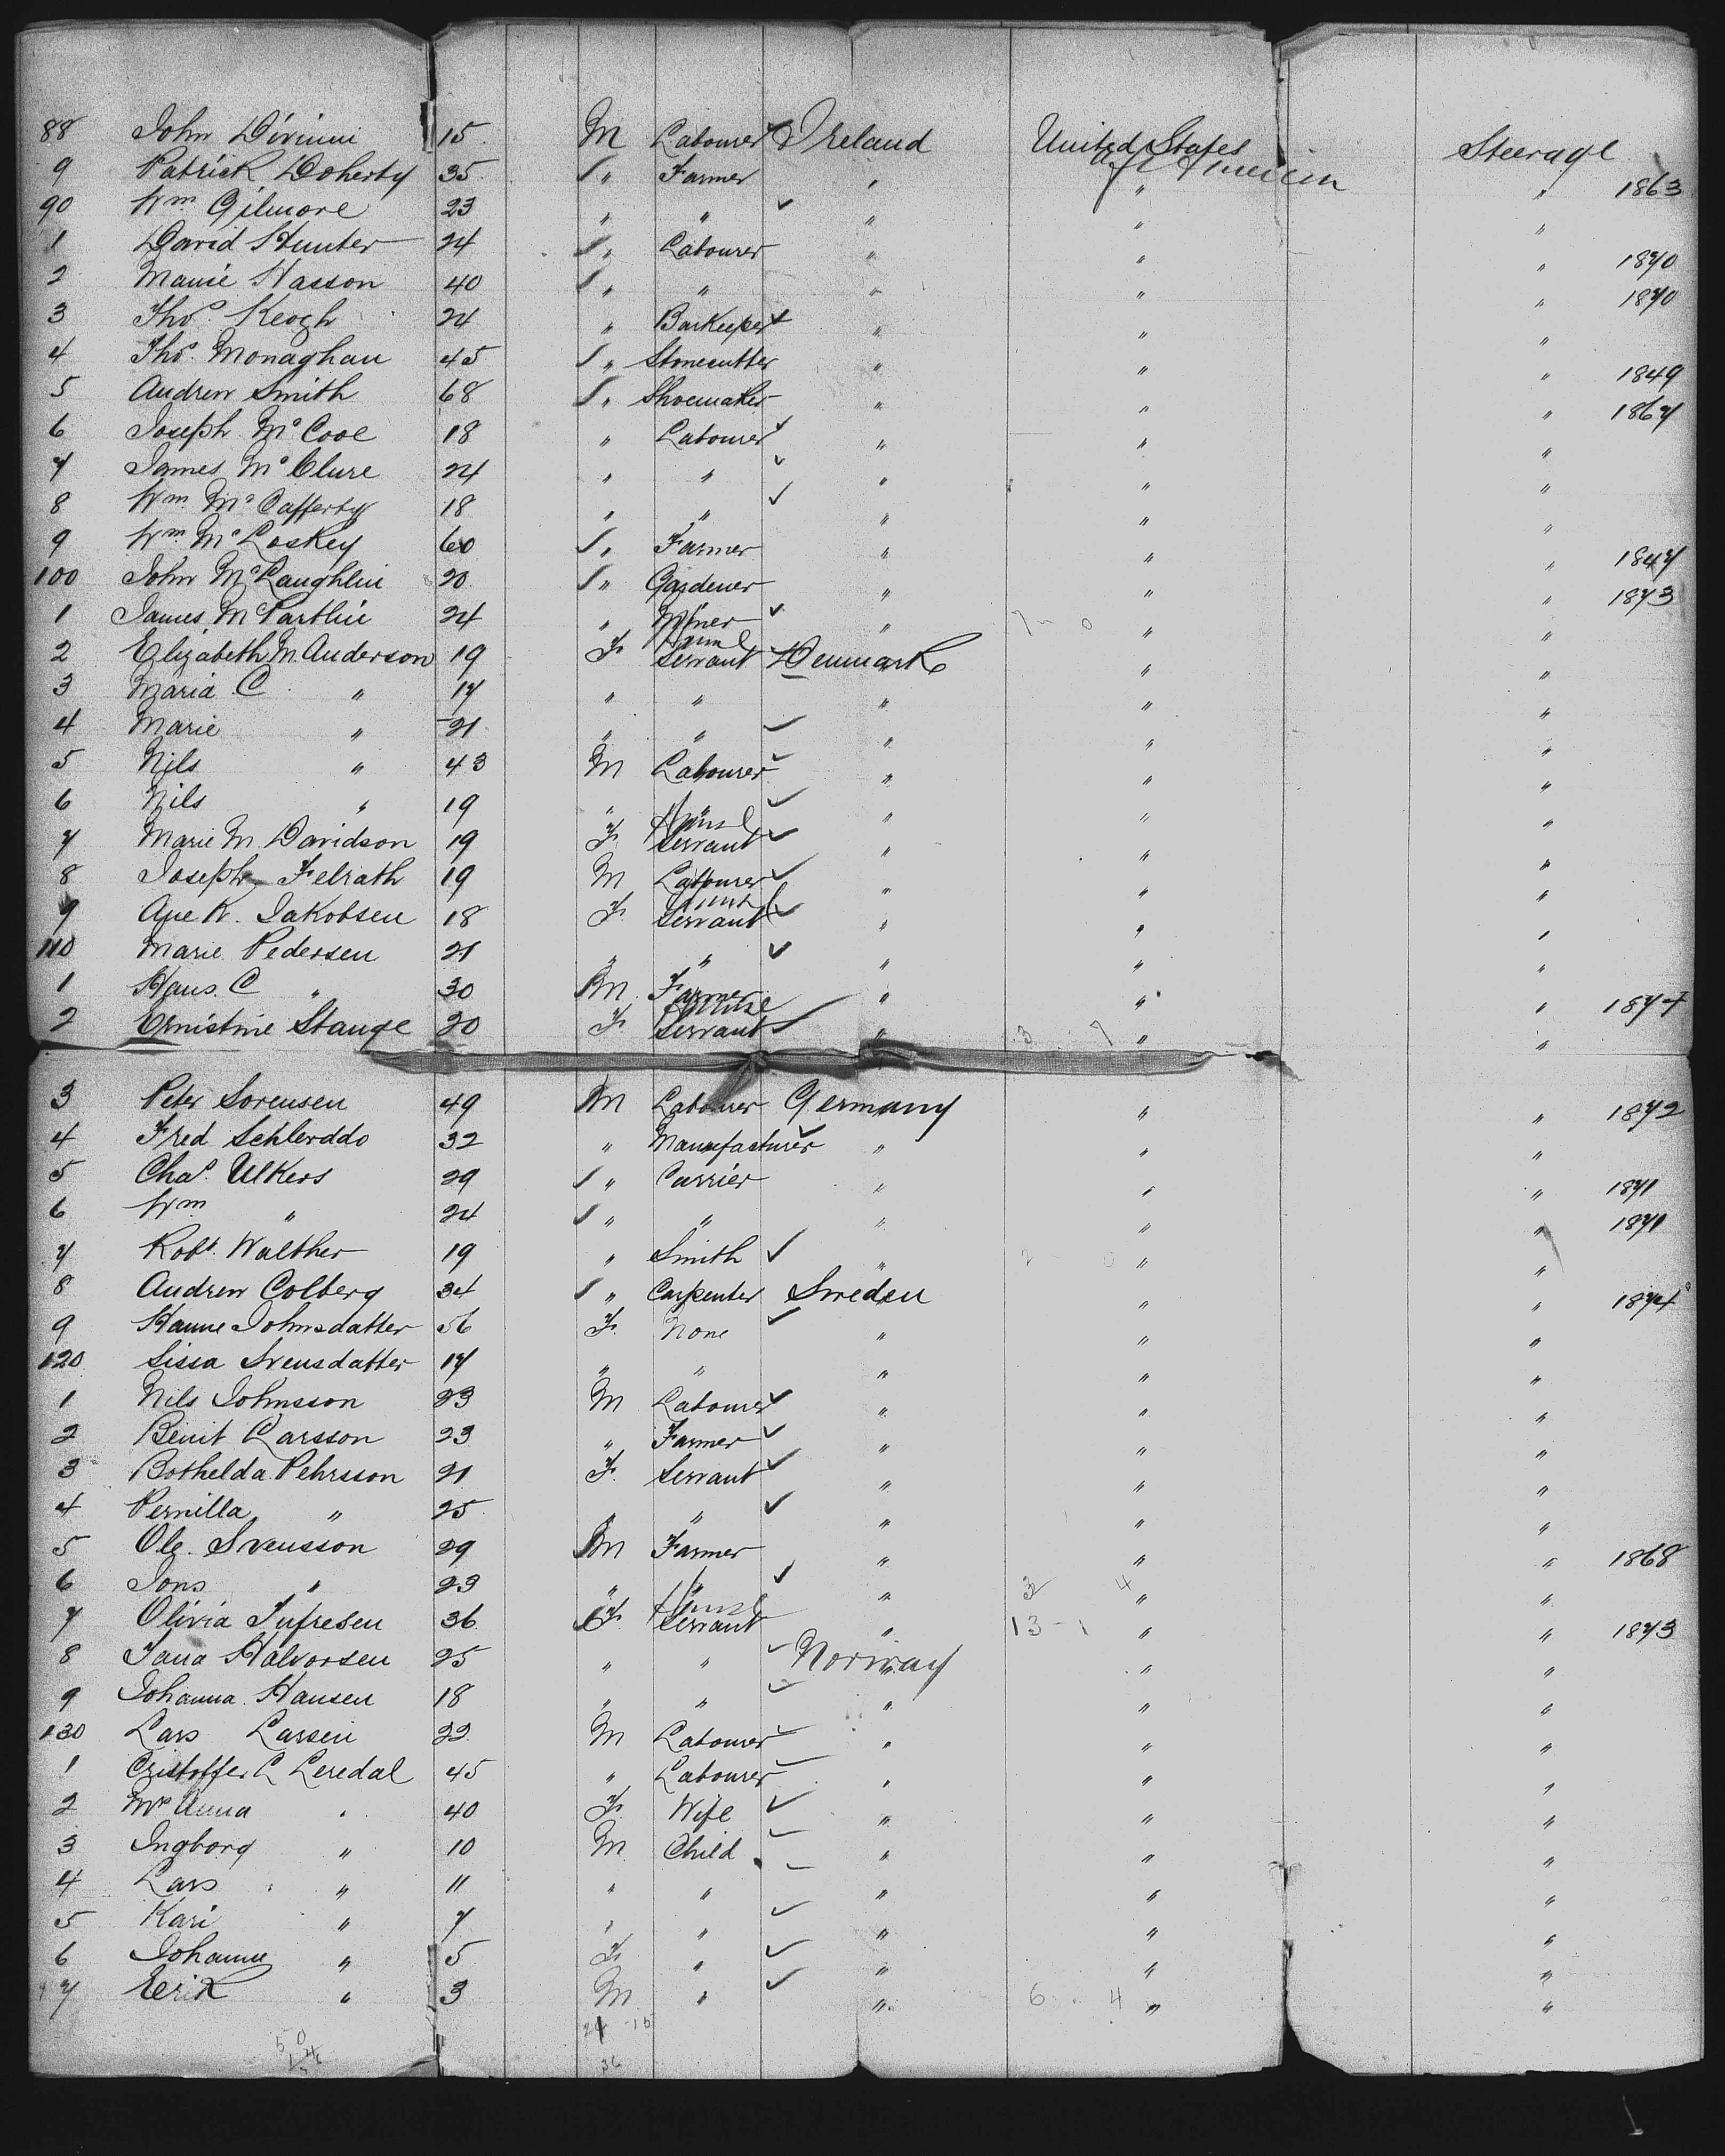 88 John Divinni 15 M Labourer Ireland United States Steerage
of America
9 Patrick Doherty 35 " Farmer " " " 1863
90 Wm Gilmore 23 " " " " "
1 David Hunter 24 " Labourer " " " 1870
2 Manie Hasson 40 " " " " " 1870
3 Thos. Keogh 24 " Barkeeper " " "
4 Thos. Monaghan 45 " Stonecutter " " " 1849
5 Andrew Smith 68 " Shoemaker " " " 1867
6 Joseph McCool 18 " Labourer " " "
7 James McClure 24 " " " " "
8 Wm McCafferty 18 " " " " "
9 Wm McLoskey 60 " Farmer " " " 1847
100 John McLaughlin 20 " Gardener " " " 1873
1 James McPartlin 24 " Miner " 7 - 0 " "
2 Elizabeth M. Anderson 19 F. Servant Denmark " "
3 Maria C " 17 " " " " "
4 Marie " 21 " " " " "
5 Nils " 43 M Labourer " " "
6 Nils " 19 " " " " "
7 Marie M. Davidson 19 F. Servant " " "
8 Joseph Felrath 19 M Labourer " " "
9 Ane K. Jakobsen 18 F Servant " " "
110 Marie Pedersen 21 " " " " "
1 Hans. C " 30 M. Farmer " " " 1874
2 Ernistine Stange 20 F. Servant " 3 7 " "
3 Peter Sorensen 49 M Labourer Germany " " 1872
4 Fred Schlerddo 32 " Manufacturer " " "
5 Chas. Ulkers 29 " Currier " " " 1871
6 Wm " 24 " " " " " 1871
7 Robt. Walther 19 " Smith " 2 0 " "
8 Andrew Colberg 34 " Carpenter Sweden " " 1874
9 Hanne Johnsdatter 56 F. None " " "
120 Sissa Svensdatter 17 " " " " "
1 Nils Johnsson 23 M Labourer " " "
2 Benit Larsson 23 " Farmer " " "
3 Bothelda Pehrsson 21 F. Servant " " "
4 Pernilla " 25 " " " " "
5 Ole Svensson 29 M Farmer " " " 1868
6 Jons " 23 " " " 3 4 " "
7 Olivia Tufresen 36 F. Servant " 13 - 1 " " 1873
8 Jana Halvorsen 25 " " Norway " "
9 Johanna Hansen 18 " " " " "
130 Lars Larsen 22 M Labourer " " "
1 Cristoffer L Leredal 45 " Labourer " " "
2 Mrs Anna " 40 F. Wife " " "
3 Ingborg " 10 M Child " " "
4 Lars " 11 " " " " "
5 Kari " 7 " " " " "
6 Johanne " 5 F " " " "
7 Eerik " 3 M " " 6 4 " "
36